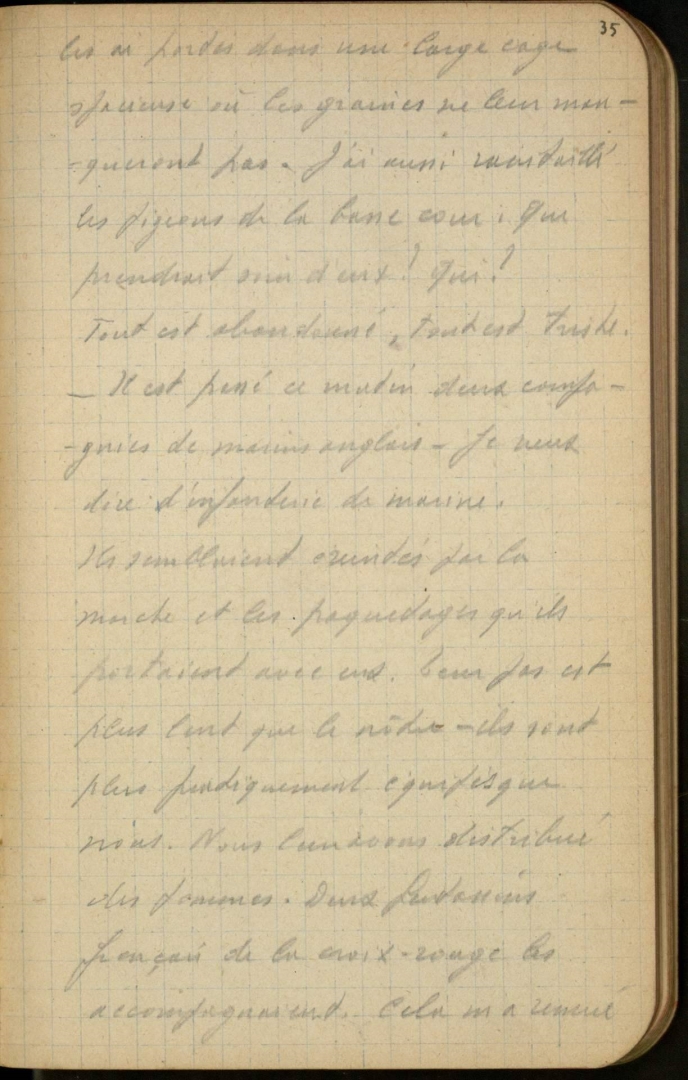 35
les ai portés dans une large cage
spacieuse où les graines ne leur man-
-queront pas. J'ai aussi ravitaillé
les pigeons de la basse cour. Qui
prendrait soin d'eux? Qui?
Tout est abandonné, tout est triste.
_ Il est passé ce matin deux compa-
-gnies de marins anglais - Je veux
dire d'infanterie de marine.
Ils semblaient éreintés par la
marche et les paquetages qu'ils
portaient avec eux. Leur pas est
plus lent que le nôtre - ils sont
plus pratiquement équipés que
nous. Nous leur avons distribué
des pommes. Deux
français de la croix-rouge les
accompagnaient. Cela m'a remué